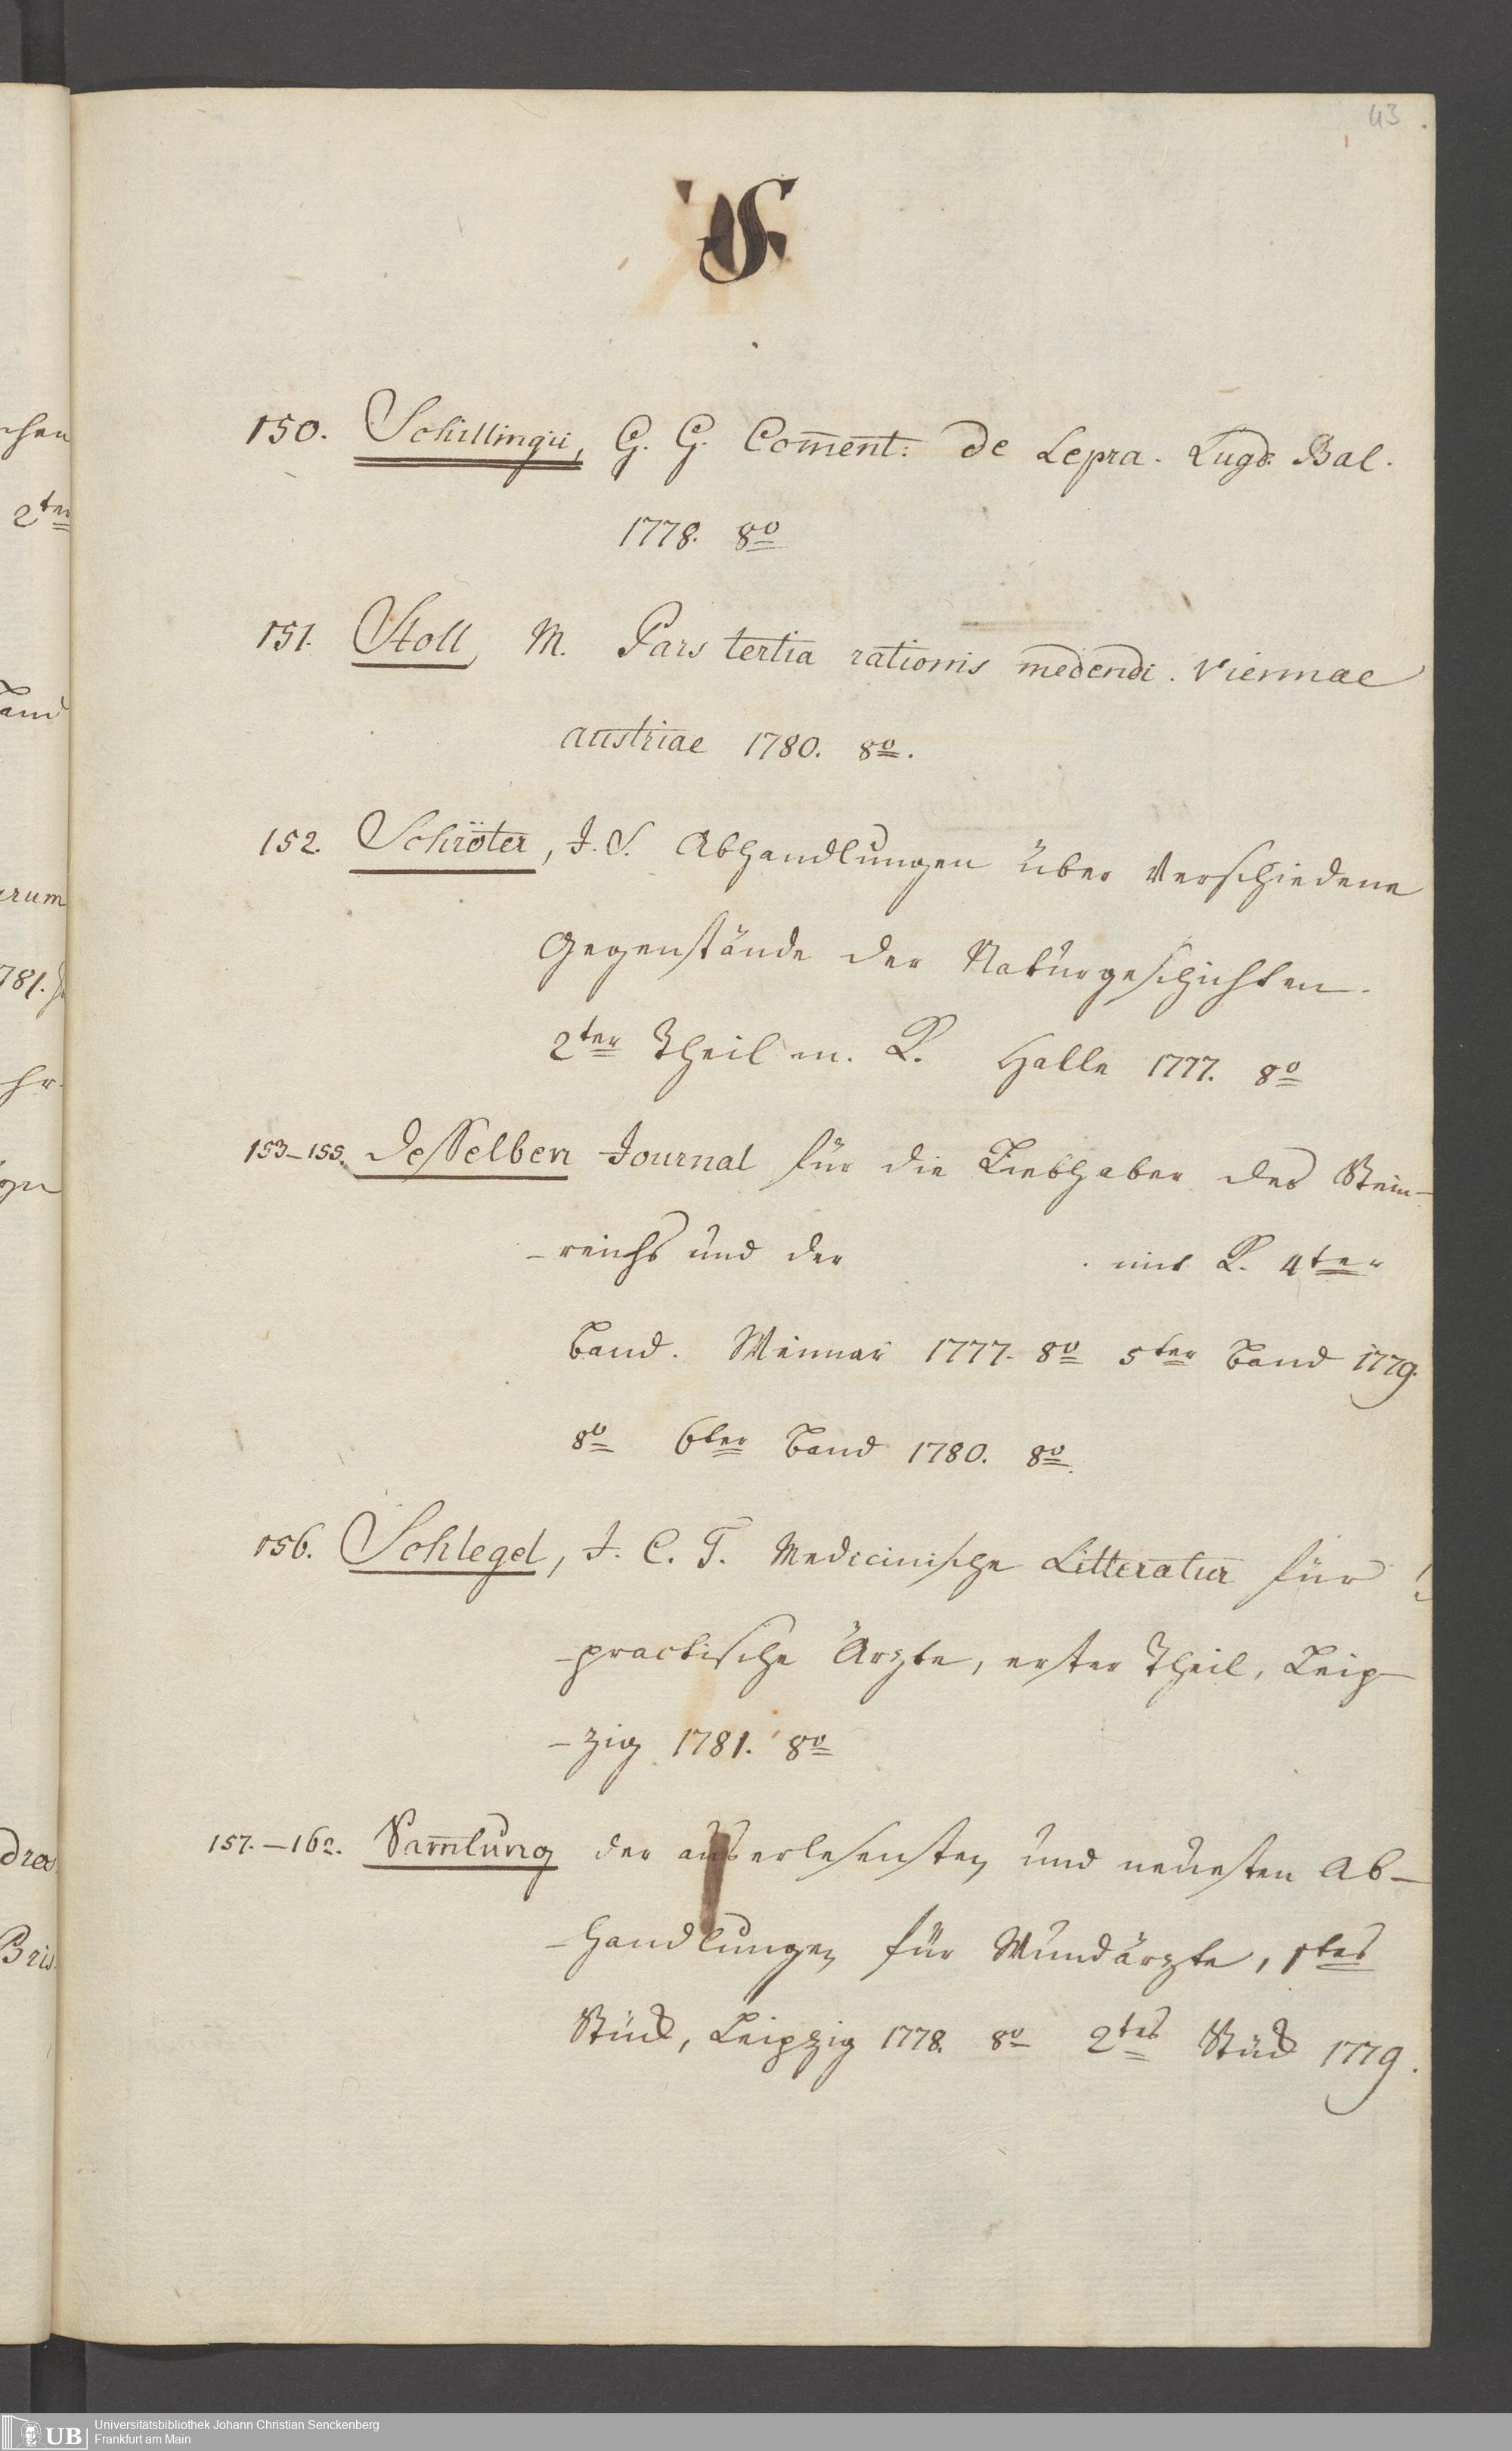 43
S.
150. Schillingii, G. G. Com̄ent: de Lepra. Lugd. Bal.
1778. 8º
151. Stoll, M. Pars tertia rationis medendi. Viennae
austriae 1780. 8º.
152. Schröter, J. S. Abhandlungen über verschiedene
Gegenstände der Naturgeschichten.
2ter Theil m. K. Halle 1777. 8º
153–155. Desselben Journal für die Liebhaber des Stein-
-reichs und der . mit K. 4ter
Band. Weimar 1777. 8º 5ter Band 1779.
8º 6ter Band 1780. 8º.
156. Schlegel, J. C. T. Medicinische Litteratur für
practische Ärzte, erster Theil, Leip-
-zig 1781. 8º
157.–162. Sam̄lung der auserlesensten und neuesten Ab-
-handlungen für Wundärzte, 1tes
Stück, Leipzig 1778. 8º 2tes Stück 1779.
chen
2ter
Band
arum
781.
dros
Bris
UB
Universitätsbibliothek Johann Christian Senckenberg
Frankfurt am Main